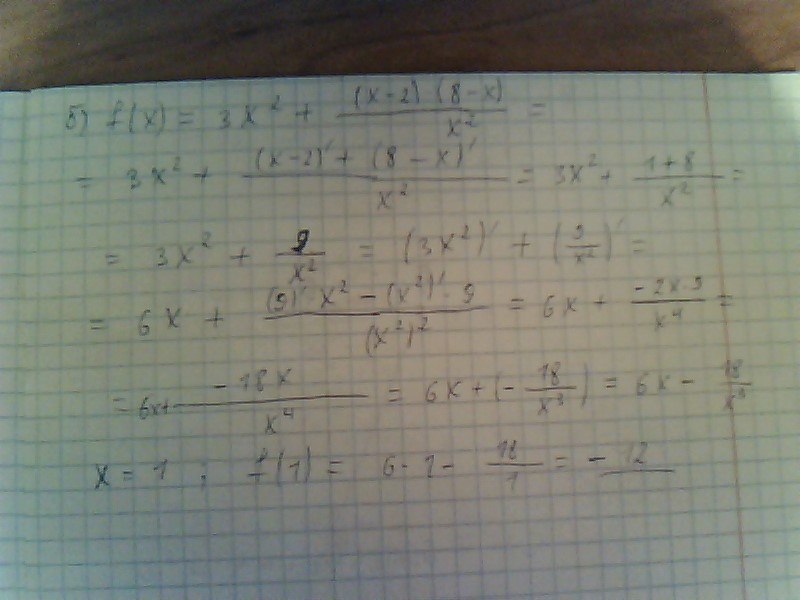 б) f(x) = 3x² + (x-2)(8-x)/x² =
= 3x² + (x-2)'+ (8-x)'/x² = 3x² + 1+8/x² =
= 3x² + 9/x² = (3x²)' + (9/x²)' =
= 6x + (9)'·x² - (x²)'·9/(x²)² = 6x + -2x·9/x⁴ =
= 6x+ -18x/x⁴ = 6x+(-18/x³) = 6x - 18/x³
x = 1 ; f(1) = 6·1 - 18/1 = -12